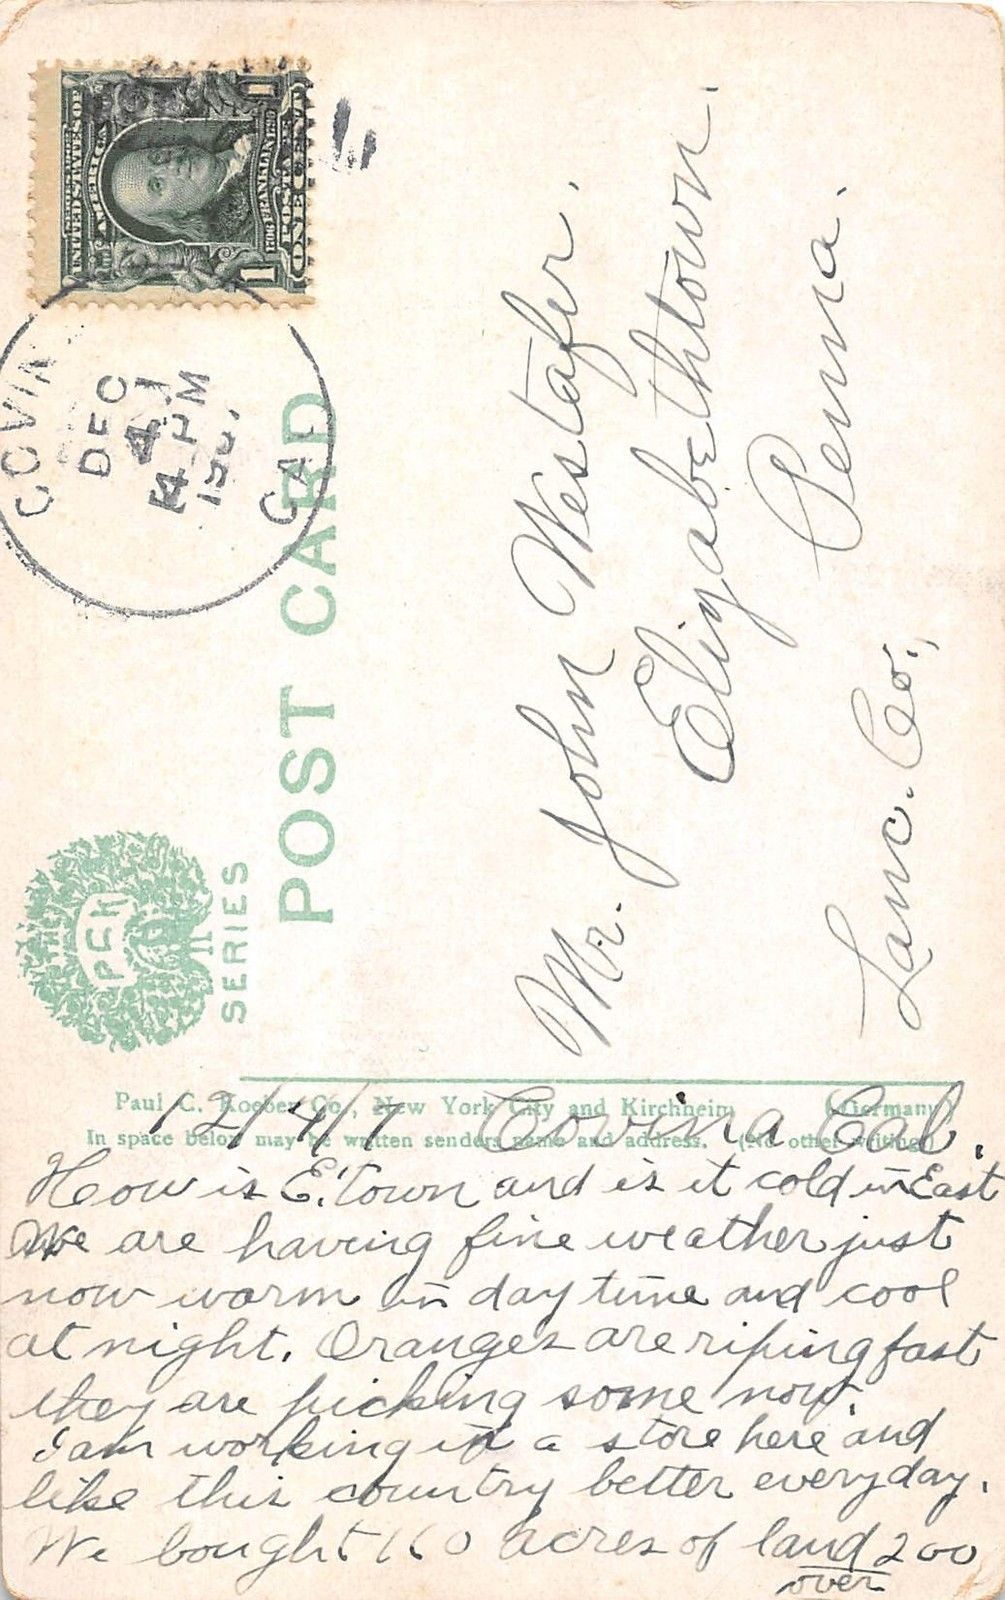 SERIES 1902
UNITED STATES OF
AMERICA
1706 FRANKLIN 1790
POSTAGE
ONE CENT
1 1
COVIN
DEC
4
4 PM
190
CAL
POST CARD
THE
PCK
SERIES
Mr. John Westafer.
Elizabethtown.
Penna.
Lanc. Co.,
Paul C. Koeber Co., New York City and Kirchheim (Germany)
In space below may be written senders name and address. (No other writing)
12/4/7 Covina Cal.
How is E.'town and is it cold in East
We are having fine weather just
now warm in day time and cool
at night. Oranges are riping fast
they are picking some now.
I am working in a store here and
like this country better everyday.
We bought 160 acres of land 200
over